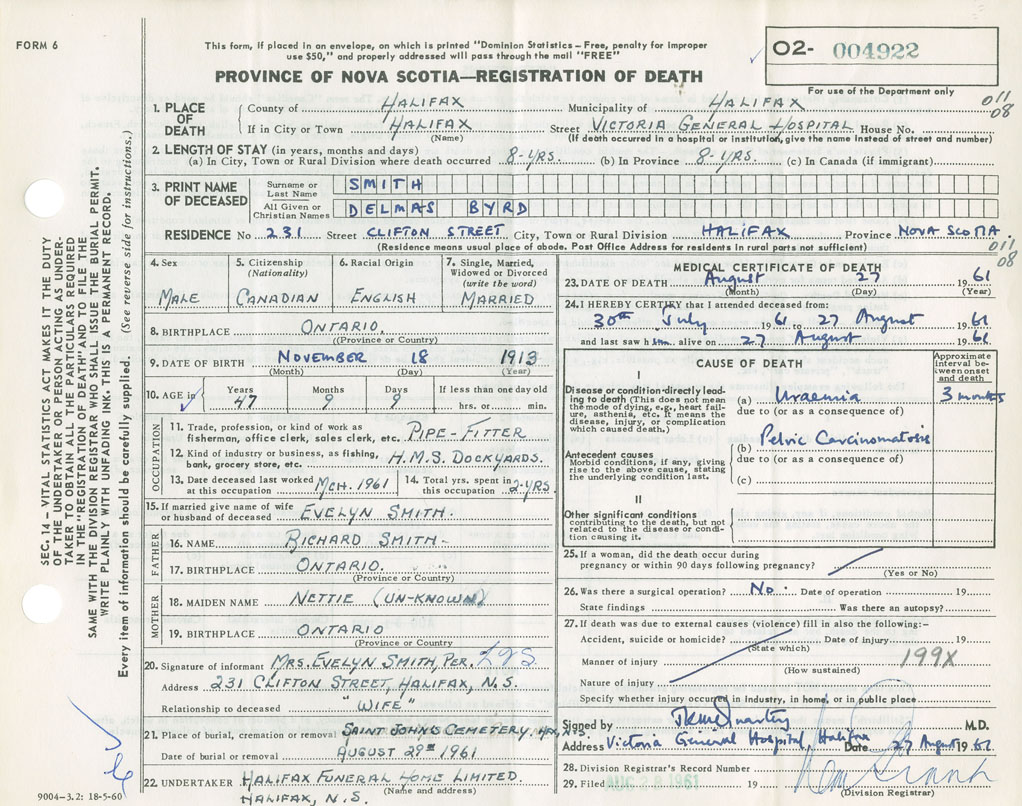 FORM 6
This form, if placed in an envelope, on which is printed "Dominion Statistics – Free, penalty for improper
use $50," and properly addressed will pass through the mail "FREE"
O2- 004922
For use of the Department only
PROVINCE OF NOVA SCOTIA—REGISTRATION OF DEATH
011
08
1. PLACE OF DEATH County of HALIFAX Municipality of HALIFAX
If in City or Town HALIFAX Street VICTORIA GENERAL HOSPITAL House No.
(Name) (If death occurred in a hospital or institution, give the name instead of street and number)
2. LENGTH OF STAY (in years, months and days)
(a) In City, Town or Rural Division where death occurred 8-YRS. (b) In Province 8-YRS. (c) In Canada (if immigrant)
3. PRINT NAME OF DECEASED Surname or Last Name SMITH
All Given or Christian Names DELMAS BYRD
RESIDENCE No 231 Street CLIFTON STREET City, Town or Rural Division HALIFAX Province NOVA SCOTIA.
(Residence means usual place of abode. Post Office Address for residents in rural parts not sufficient)
011
08
4. Sex MALE
5. Citizenship (Nationality) CANADIAN
6. Racial Origin ENGLISH
7. Single, Married, Widowed or Divorced (write the word) MARRIED
8. BIRTHPLACE ONTARIO.
(Province or Country)
9. DATE OF BIRTH NOVEMBER 18 1913
(Month) (Day) (Year)
10. AGE in Years 47 Months 9 Days 9 If less than one day old
hrs. or min.
OCCUPATION
11. Trade, profession, or kind of work as
fisherman, office clerk, sales clerk, etc. PIPE-FITTER
12. Kind of industry or business, as fishing,
bank, grocery store, etc. H.M.S. DOCKYARDS.
13. Date deceased last worked at this occupation MCH. 1961 14. Total yrs. spent in this occupation 2-YRS.
15. If married give name of wife
or husband of deceased EVELYN SMITH.
FATHER
16. NAME RICHARD SMITH.
17. BIRTHPLACE ONTARIO.
(Province or Country)
MOTHER
18. MAIDEN NAME NETTIE (UN-KNOWN)
19. BIRTHPLACE ONTARIO
(Province or Country)
20. Signature of informant MRS. EVELYN SMITH, PER.
Address 231 CLIFTON STREET, HALIFAX, N.S.
Relationship to deceased "WIFE"
21. Place of burial, cremation or removal SAINT JOHN'S CEMETERY, HFX, N.S.
Date of burial or removal AUGUST 29TH 1961
22. UNDERTAKER HALIFAX FUNERAL HOME LIMITED.
(Name and address)
HALIFAX, N.S.
MEDICAL CERTIFICATE OF DEATH
23. DATE OF DEATH August 27 1961
(Month) (Day) (Year)
24. I HEREBY CERTIFY that I attended deceased from:
30th July 1961 to 27 August 1961
and last saw him alive on 27 August 1961
CAUSE OF DEATH
Approximate interval between onset and death
I
Disease or condition directly leading to death (This does not mean the mode of dying, e.g., heart failure, asthenia, etc. It means the disease, injury, or complication which caused death.)
(a) Uraemia 3 months
due to (or as a consequence of)
(b) Pelvic Carcinomatosis
Antecedent causes
Morbid conditions, if any, giving rise to the above cause, stating the underlying condition last.
due to (or as a consequence of)
(c)
II
Other significant conditions
contributing to the death, but not related to the disease or condition causing it.
25. If a woman, did the death occur during
pregnancy or within 90 days following pregnancy?
(Yes or No)
26. Was there a surgical operation? No. Date of operation 19
State findings Was there an autopsy?
27. If death was due to external causes (violence) fill in also the following:-
Accident, suicide or homicide? Date of injury 19
(State which)
Manner of injury 199X
(How sustained)
Nature of injury
Specify whether injury occured in Industry, in home, or in public place
Signed by M.D.
Address Victoria General Hospital, Halifax Date 27 August 1961
28. Division Registrar's Record Number
29. Filed AUG 28 1961 19
(Division Registrar)
SEC. 14 – VITAL STATISTICS ACT MAKES IT THE DUTY
OF THE UNDERTAKER OR PERSON ACTING AS UNDER-
TAKER TO OBTAIN ALL THE PARTICULARS REQUIRED
IN THE "REGISTRATION OF DEATH" AND TO FILE THE
SAME WITH THE DIVISION REGISTRAR WHO SHALL ISSUE THE BURIAL PERMIT.
WRITE PLAINLY WITH UNFADING INK. THIS IS A PERMANENT RECORD.
Every item of information should be carefully supplied. (See reverse side for instructions.)
9004-3.2: 18-5-60